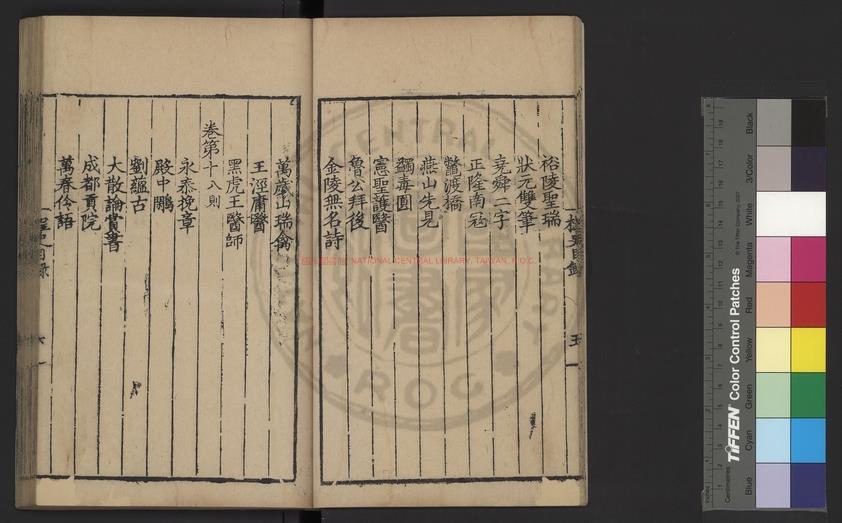 裕陵聖瑞
狀元雙筆
堯舜二字
正隆南寇
鼈渡橋
燕山先見
蠲毒圓
憲聖護醫
魯公拜後
金陵無名詩
萬歲山瑞禽
王涇庸醫
黑虎王醫師
卷第十八則
永泰挽章
殿中鶻
劉蘊古
大散論賞書
成都貢院
萬春伶語
NATIONAL CENTRAL LIBRARY, TAIWAN, R.O.C
TIFFEN Color Control Patches
© The Tiffen Company, 2007
Centimetres
Inches
Blue
Cyan
Green
Yellow
Red
Magenta
White
3/Color
Black